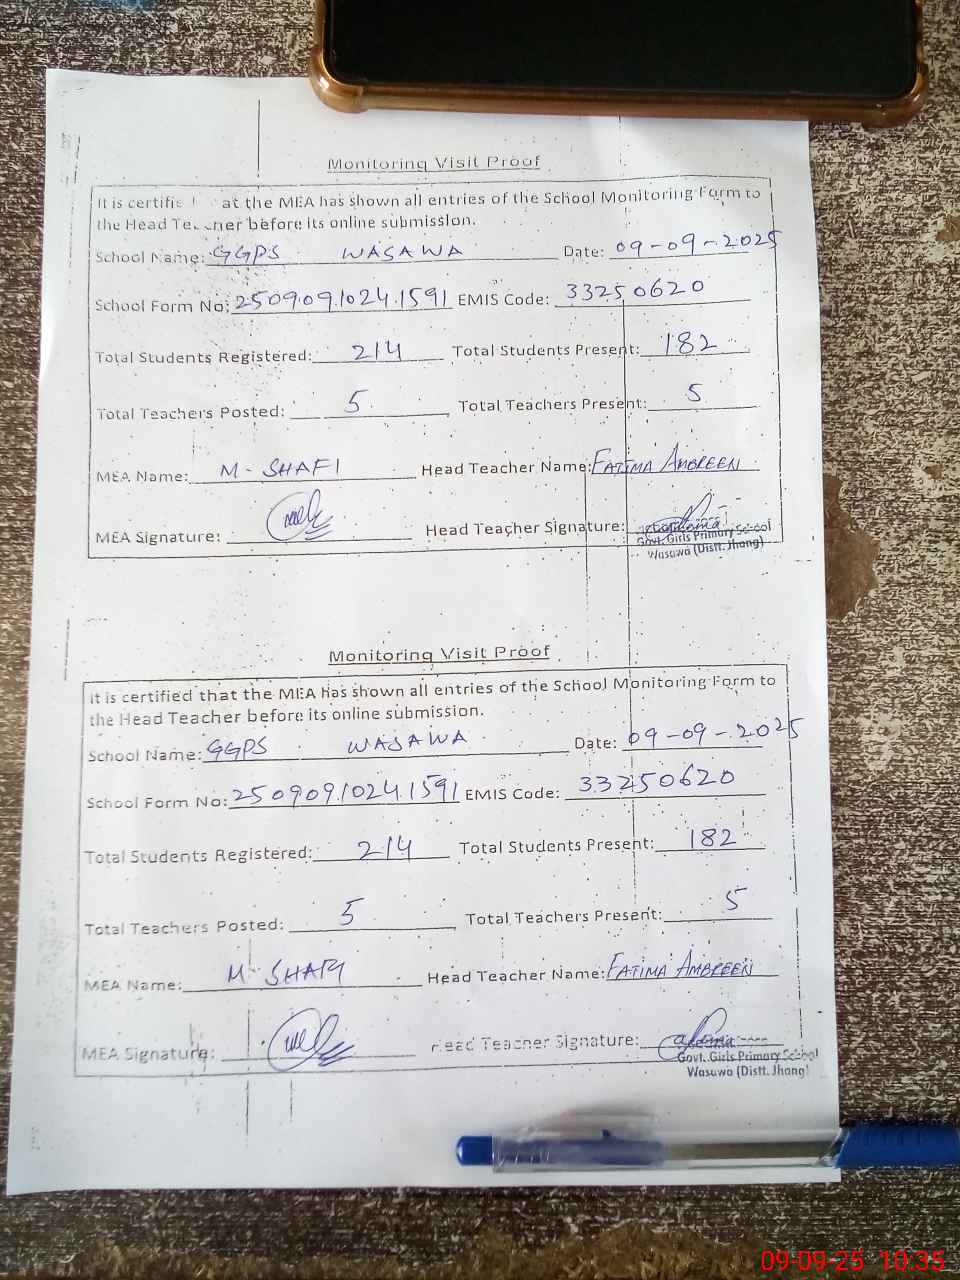 Monitoring Visit Proof
It is certifie at the MEA has shown all entries of the School Monitoring Form to
the Head Te cner before its online submission.
School Name: GGPS WASAWA Date: 09-09-2025
School Form No: 250909.1024.1591 EMIS Code: 33250620
Total Students Registered: 214 Total Students Present: 182
Total Teachers Posted: 5 Total Teachers Present: 5
MEA Name: M-SHAFI Head Teacher Name: FATIMA AMBREEN
MEA Signature: Head Teacher Signature:
Govt. Girls Primary School
Wasuwa (Distt. Jhang)
Monitoring Visit Proof
It is certified that the MEA has shown all entries of the School Monitoring Form to
the Head Teacher before its online submission.
School Name: GGPS WASAWA Date: 09-09-2025
School Form No: 250909.1024.1591 EMIS Code: 33250620
Total Students Registered: 214 Total Students Present: 182
Total Teachers Posted: 5 Total Teachers Present: 5
MEA Name: M-SHAFI Head Teacher Name: FATIMA AMBREEN
MEA Signature: Head Teacher Signature:
Govt. Girls Primary School
Wasuwa (Distt. Jhang)
09-09-25 10:35